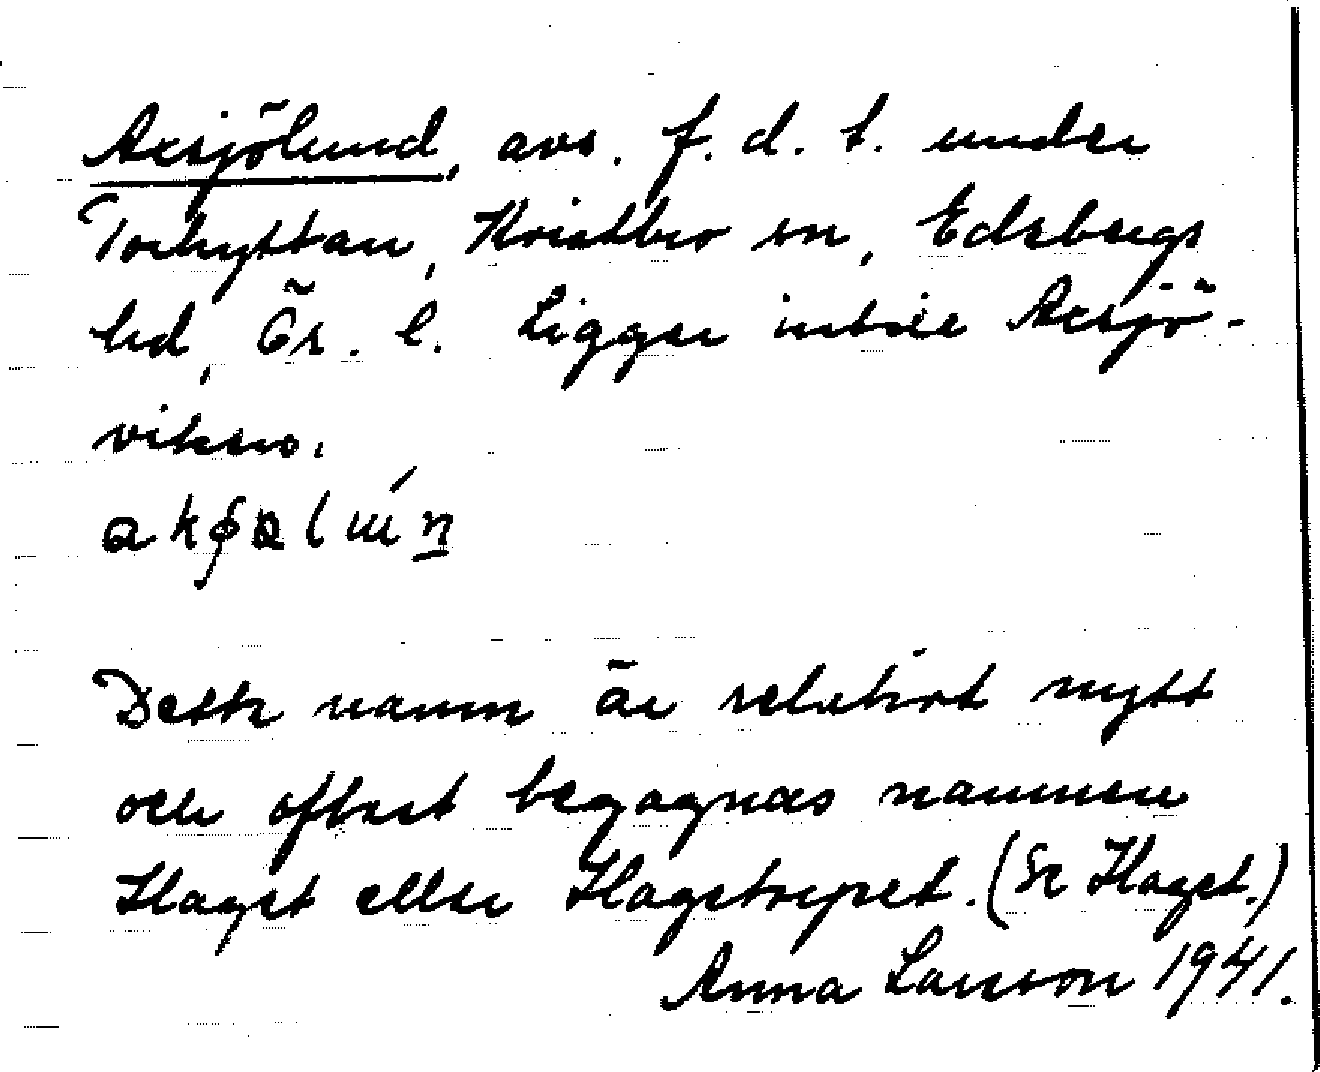 Axsjölund, avs. f. d. t. under
Torhyttan, Kvistbro sn, Edsbergs
hd, Ör. l. Ligger intill Axsjö-
viken.
Detta namn är relativt nytt
och oftast begagnas namnen
Haget eller Hagetorpet. (Se Haget.)
Anna Larsson 1941.